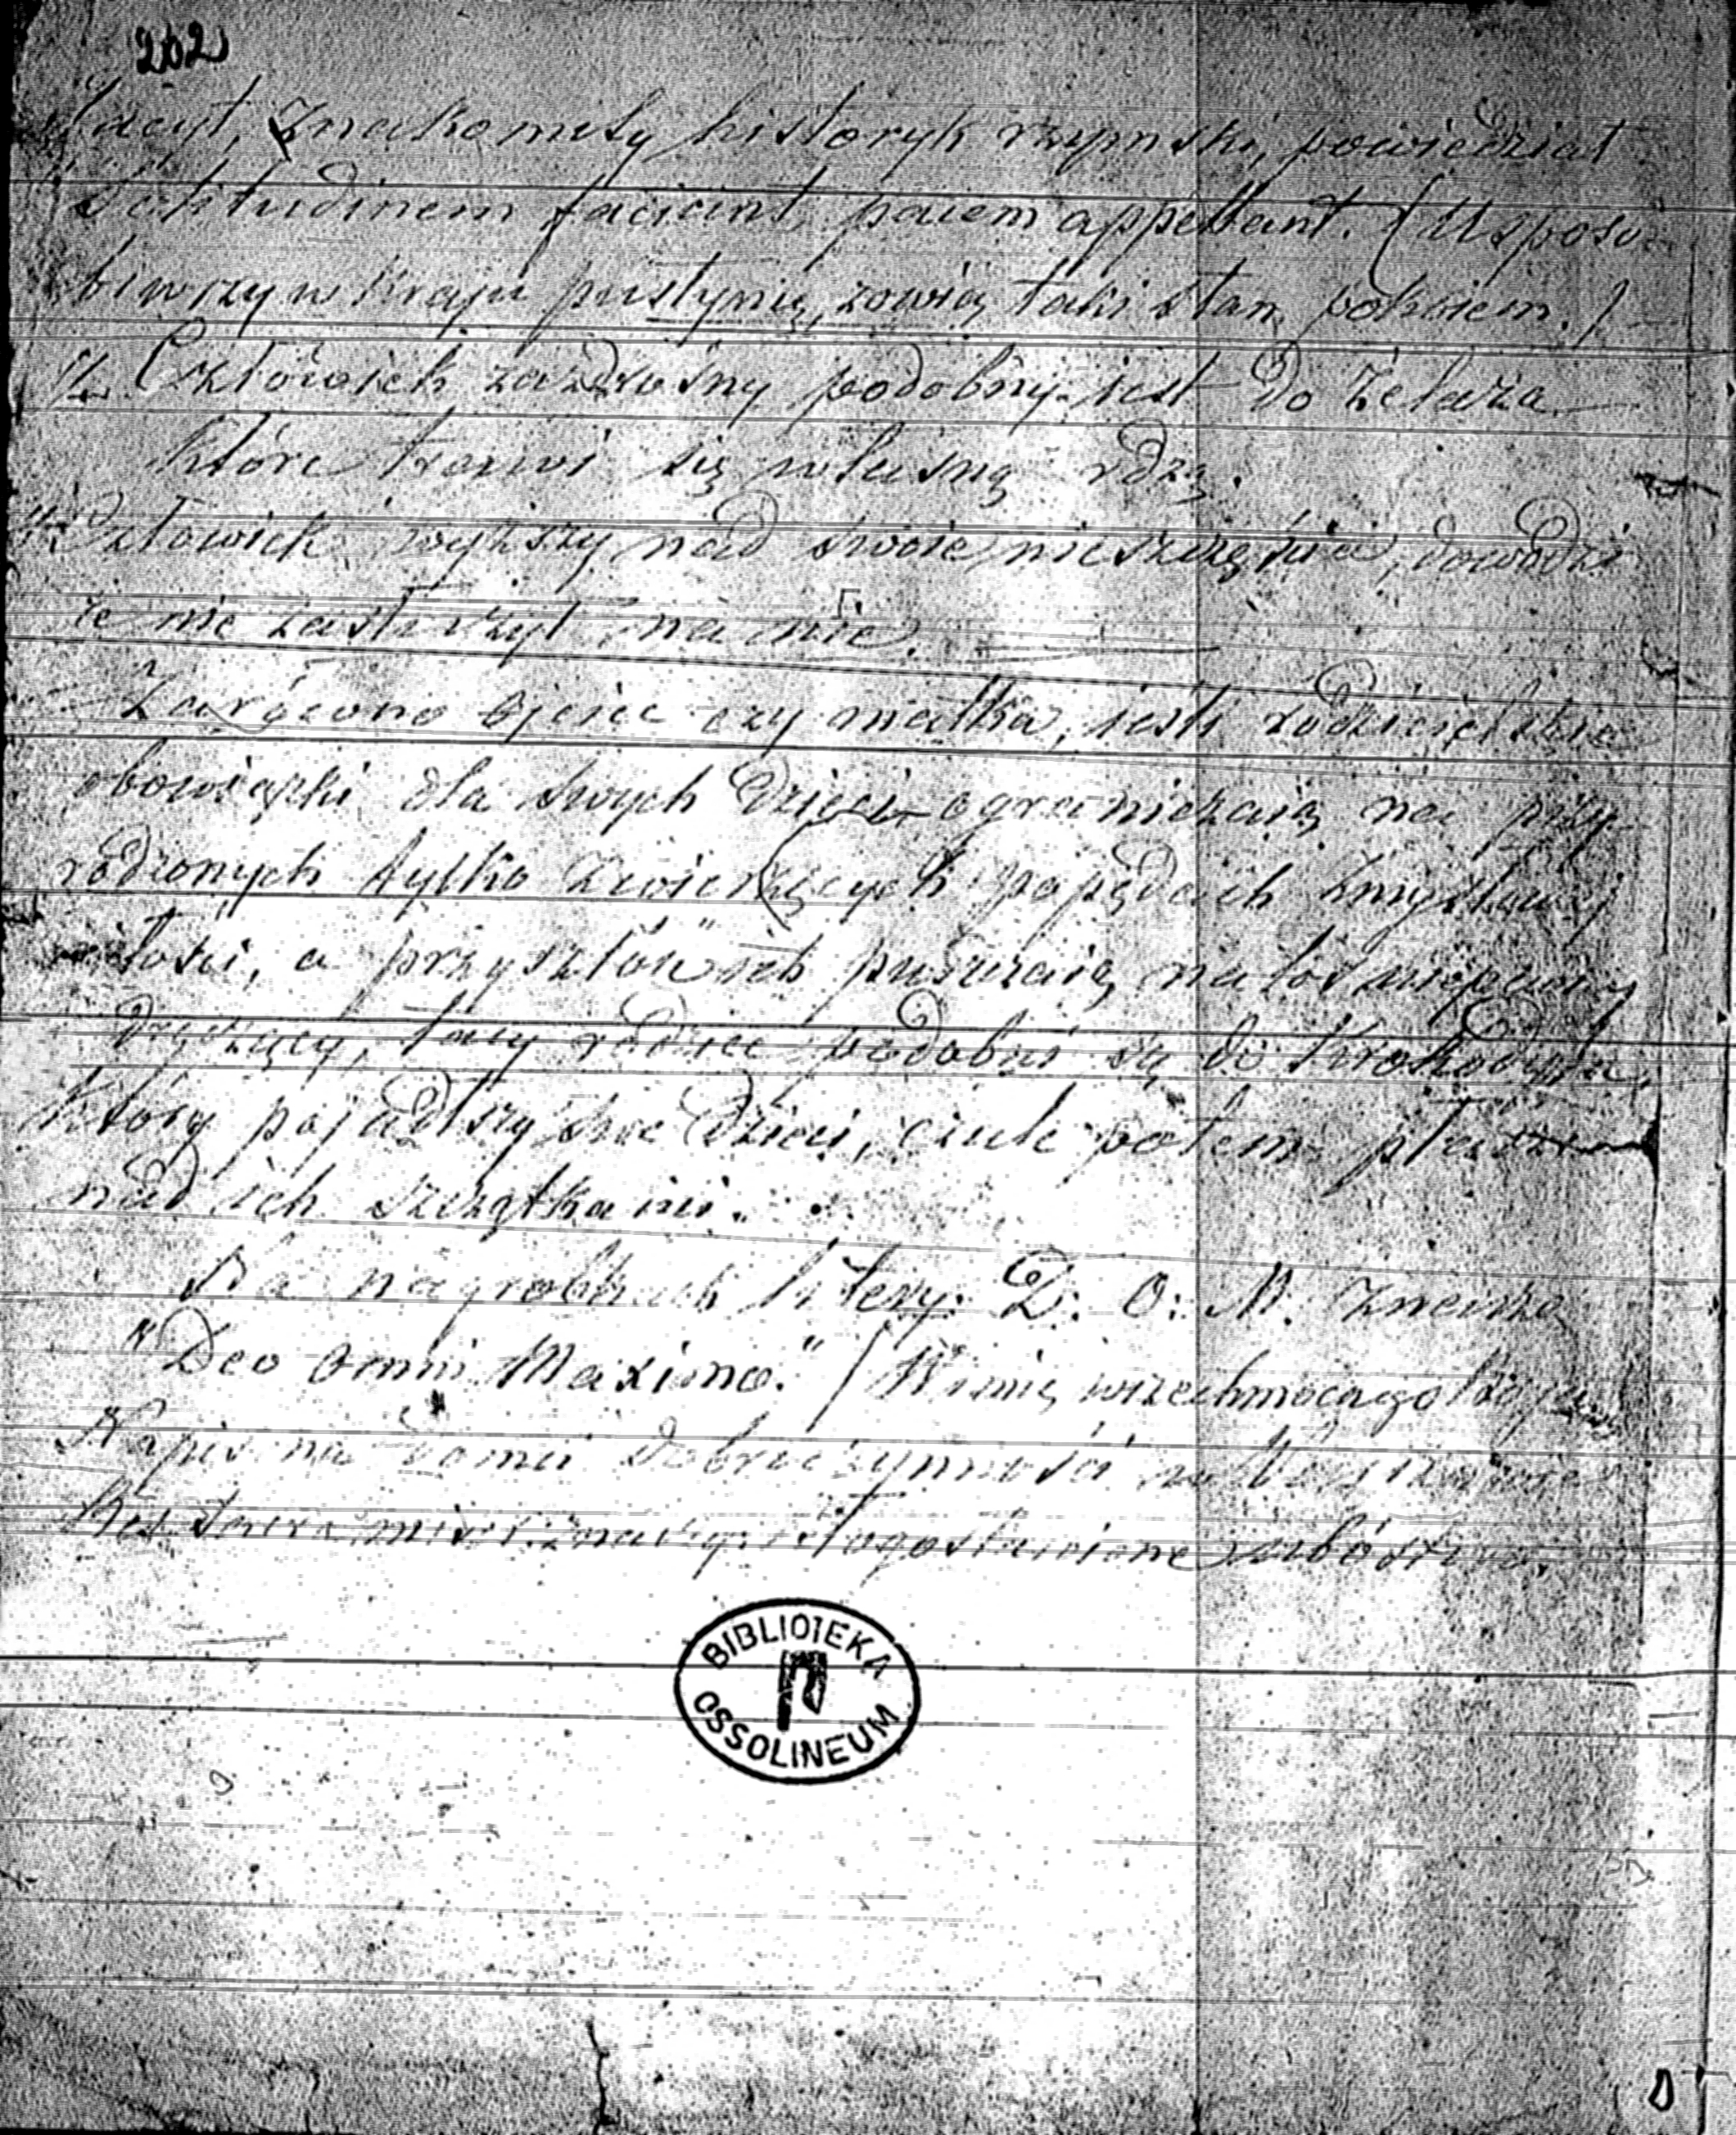 262
Tacyt, Znakomity historyk rzymski, powiedział
Solitudinem faciunt pacem appellant. (Usposo
biwszy w kraju pustynię, zowią taki stan pokoiem.)
Człowiek zazdrośny podobny iest do żelaza
które trawi się własną rdzą.
Człowiek wyższy nad swoie nieszczęścia, dowodzi
że nie zasłużył na nie.
Zarówno ojciec czy matka, iesli rodzicielskie
obowiązki dla swych dzieci ograniczaią na przy
rodzonych tylko zwierzęcych popędach zmysłowej
miłości, a przyszłość ich puszczaią na los
tacy rodzice podobni są do Krokodyla,
Który pojadłszy swe dzieci, czule potem płacze
nad ich szczątkami.
Na nagrobkach litery: D: O: M: Znaczą
"Deo Omni Maximo." (W imię wszechmocnego
Napis na domu Dobroczynności w
błogosławione ubóstwo.
BIBLIOTEKA
OSSOLINEUM